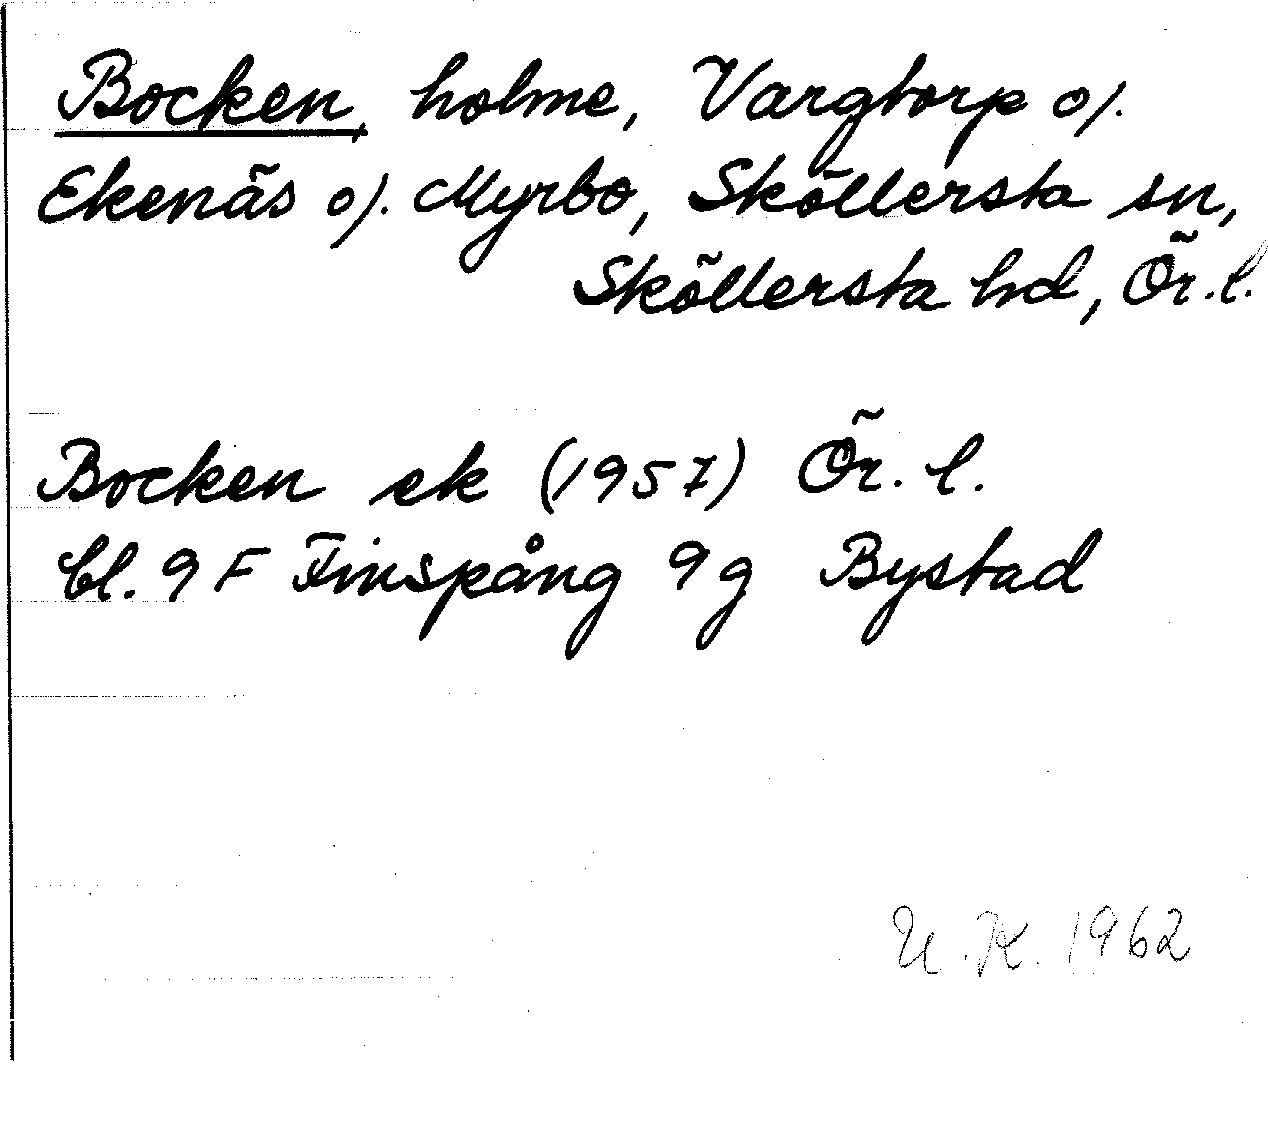 Bocken, holme, Vargtorp o/.
Ekenäs o/. Myrbo, Sköllersta sn,
Sköllersta hd, Ör. l.
Bocken ek (1957) Ör. l.
bl. 9 F Finspång 9 g Bystad
U. K. 1962